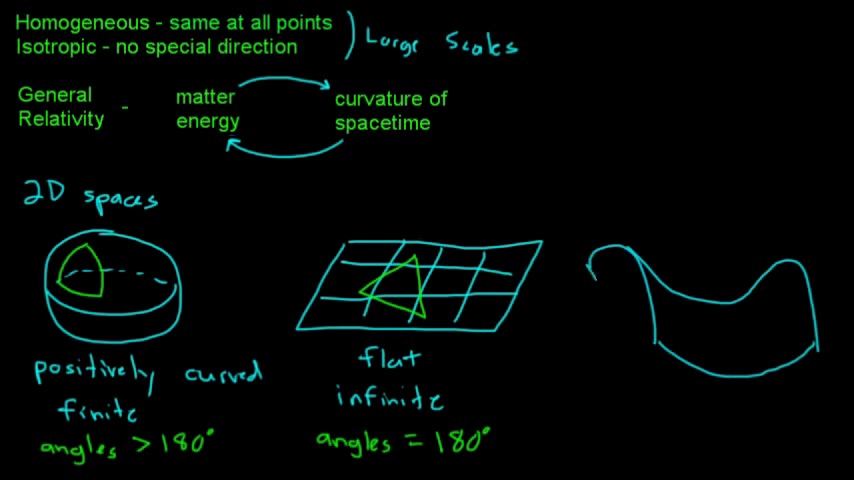 Homogeneous - same at all points
Isotropic - no special direction
Large Scales
General Relativity - matter energy curvature of spacetime
2D spaces
positively curved
finite
angles > 180°
flat
infinite
angles = 180°